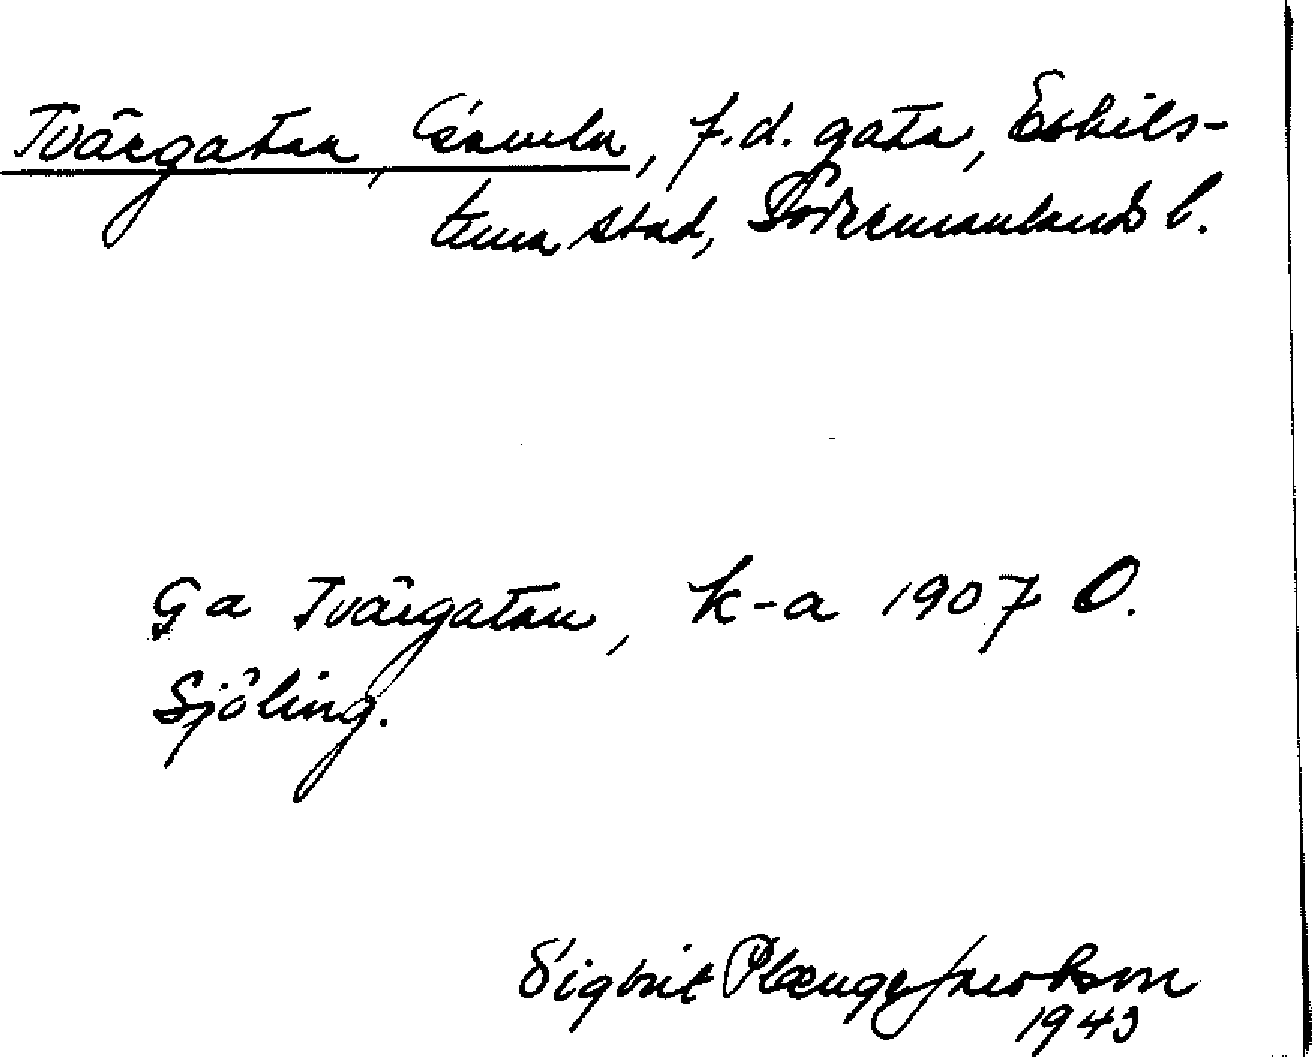 Tvärgatan, Gamla, f.d. gata, Eskils-
tuna stad, Södermanlands l.
Ga Tvärgatan, k-a 1907 O.
Sjöling.
Sigbrit Plænge Jacobson
1943